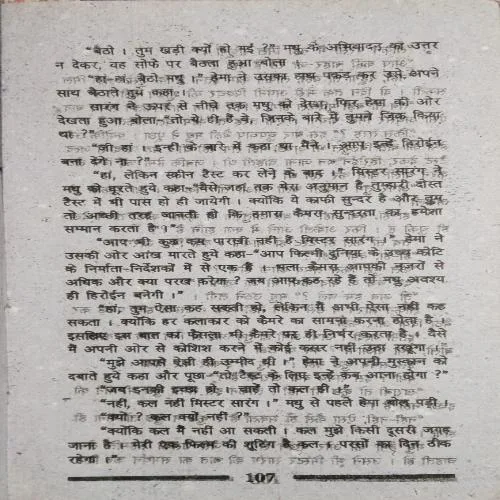 "बैठो । तुम खड़ी क्यों हो गई ?" मधु के अभिवादन का उत्तर
न देकर, वह सोफे पर बैठता हुआ बोला ।
"हां-हां, बैठो मधु ।" हेमा ने उसका हाथ पकड़ कर उसे अपने
साथ बैठाते हुये कहा ।
सारंग ने ऊपर से नीचे तक मधु को देखा, फिर हेमा की ओर
देखता हुआ बोला-"तो ये ही हैं वे, जिनके बारे में तुमने जिक्र किया
था ?"
"जी हां । इन्हीं के बारे में कहा था मैंने । आप इन्हें हिरोईन
बना देंगे ना ?"
"हां, लेकिन स्क्रीन टैस्ट कर लेने के बाद ।" मिस्टर सारंग ने
मधु को घूरते हुये कहा-"वैसे जहां तक मेरा अनुमान है तुम्हारी दोस्त
टैस्ट में भी पास हो ही जायेगी । क्योंकि ये काफी सुन्दर है और तुम
तो अच्छी तरह जानती हो कि हमारा कैमरा सुन्दरता का हमेशा
सम्मान करता है ।"
"आप भी कुछ कम पारखी नहीं हैं मिस्टर सारंग ।" हेमा ने
उसकी ओर आंख मारते हुये कहा-"आप फिल्मी दुनिया के उच्च कोटि
के निर्माता-निर्देशकों में से एक हैं । भला कैमरा आपकी नजरों से
अधिक और क्या परख करेगा ? जब आप कह रहे हैं तो मधु अवश्य
ही हिरोईन बनेगी ।"
"हां, तुम ऐसा कह सकती हो, लेकिन मैं अभी ऐसा नहीं कह
सकता । क्योंकि हर कलाकार को कैमरे का सामना करना होता है ।
इसलिए इस बात का फैसला भी कैमरे पर ही निर्भर करता है । वैसे
मैं अपनी ओर से कोशिश करने में कोई कसर नहीं उठा रखूंगा ।"
"मुझे आपसे ऐसी ही उम्मीद थी ।" हेमा ने अपनी मुस्कान
दबाते हुये कहा और पूछा-"तो टैस्ट के लिए इन्हें कब आना होगा ?"
"जब इनकी इच्छा हो । चाहें तो कल ही ।"
"नहीं, कल नहीं मिस्टर सारंग ।" मधु से पहले हेमा बोल पड़ी ।
"क्यों ? कल क्यों नहीं ?"
"क्योंकि कल मैं नहीं आ सकती । कल मुझे किसी दूसरी जगह
जाना है । मेरी एक फिल्म की शूटिंग है कल । परसों का दिन ठीक
रहेगा ।"
107